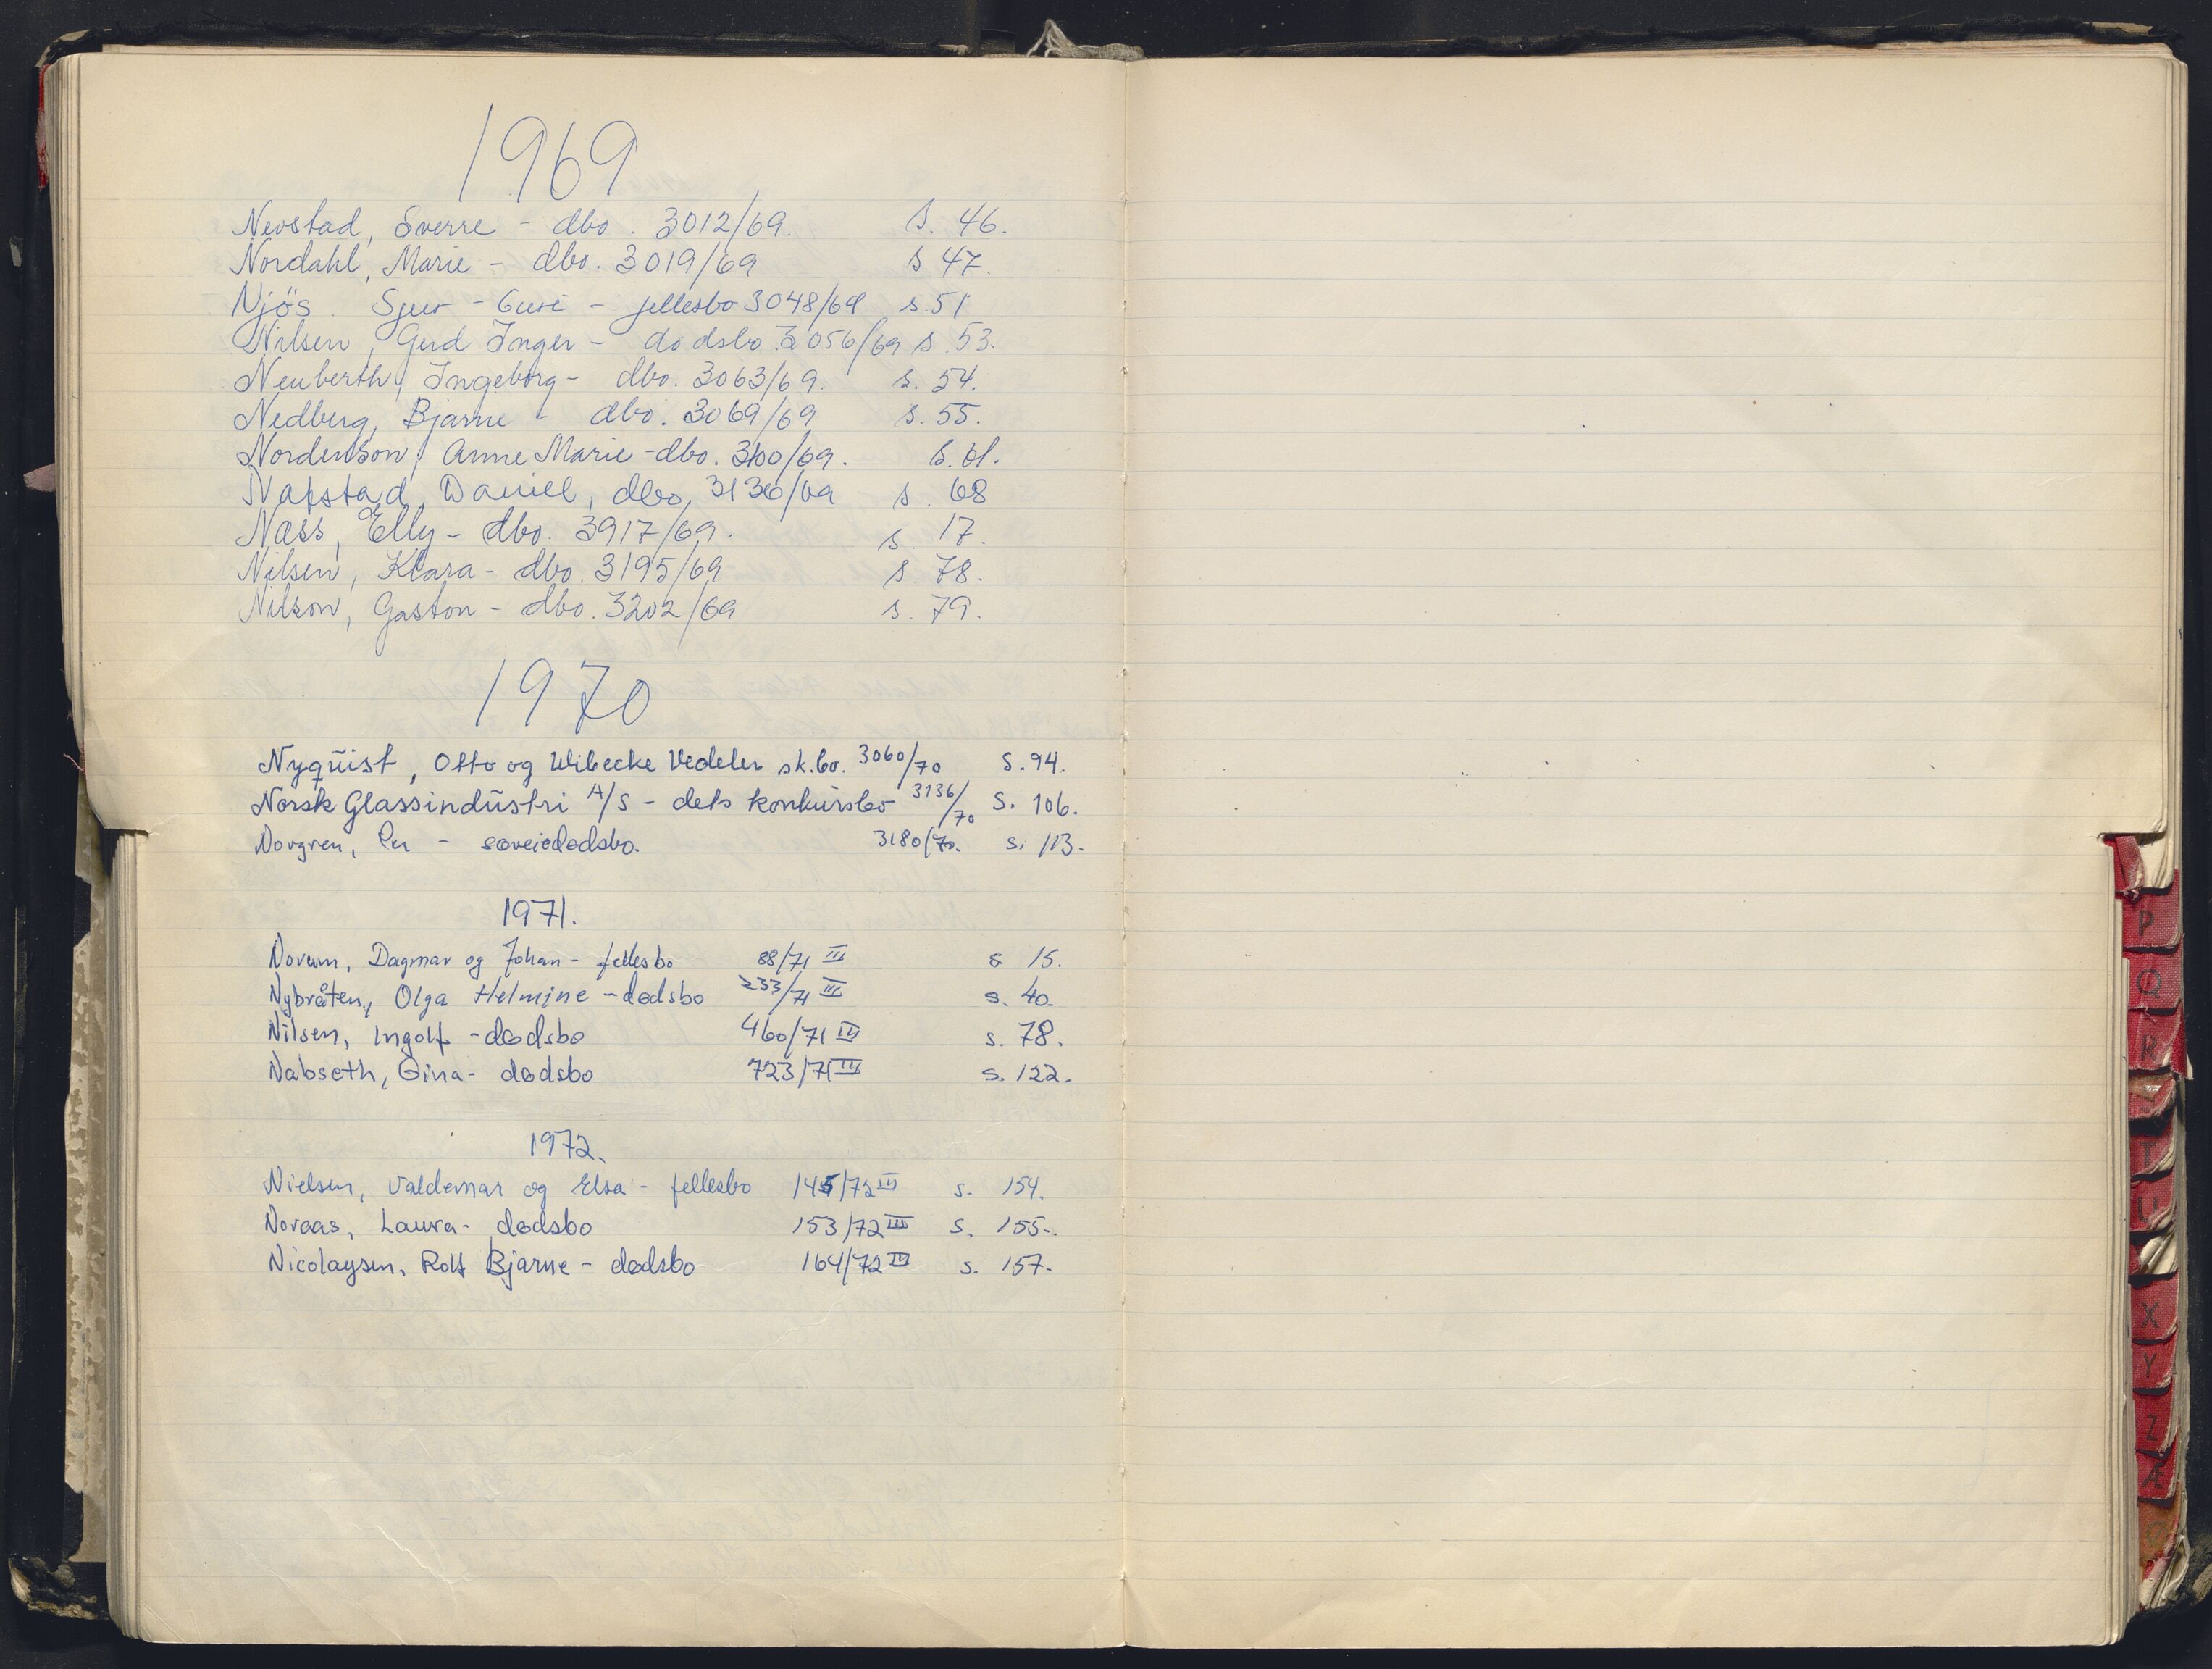 1969
Nevstad, Sverre - dbo. 3012/69. s. 46.
Nordahl, Marie - dbo. 3019/69 s 47.
Njös Sjur - Guri - fellesbo 3048/69 s. 51
Nilsen, Gerd Inger - dødsbo 3056/69 s. 53.
Neuberth, Ingeborg - dbo. 3063/69. s. 54.
Nedberg, Bjarne - dbo. 3069/69 s. 55.
Nordenson, Anne Marie - dbo. 3100/69. s. 61.
Nafstad, Daniel, dbo, 3136/69 s. 68
Næss, Elly - dbo. 3917/69. s. 17.
Nilsen, Klara - dbo. 3195/69 s 78.
Nilson, Gaston - dbo. 3202/69 s. 79.
1970
Nyquist, Otto og Wibecke Vedeler sk.bo. 3060/70 S. 94.
Norsk Glassindustri A/S - dets konkursbo 3136/70 S. 106.
Norgren, Per - særeiedødsbo. 3180/70. s. 113.
1971.
Norum, Dagmar og Johan - fellesbo 88/71 III s 15.
Nybråten, Olga Helmine - dødsbo 233/71 III s. 40.
Nilsen, Ingolf - dødsbo 460/71 III s. 78.
Nabseth, Gina - dødsbo 723/71 III s. 122.
1972.
Nielsen, Valdemar og Elsa - fellesbo 145/72 III s. 154.
Noraas, Laura - dødsbo 153/72 III s. 155.
Nicolaysen, Rolf Bjarne - dødsbo 164/72 III s. 157.
P
Q
R
T
U
X
Y
Z
Æ